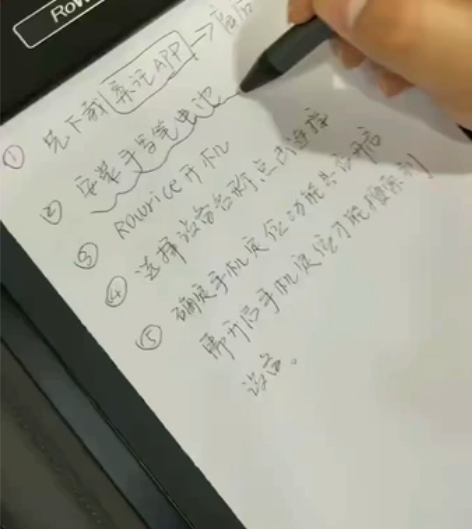 Row
① 先下载柔记APP→
② 安装手写笔电池
③ Rowrite开机
④ 选择设备名称点击连接
⑤ 确定手机定位功能是否开启
需开启手机定位功能搜索到
设备。